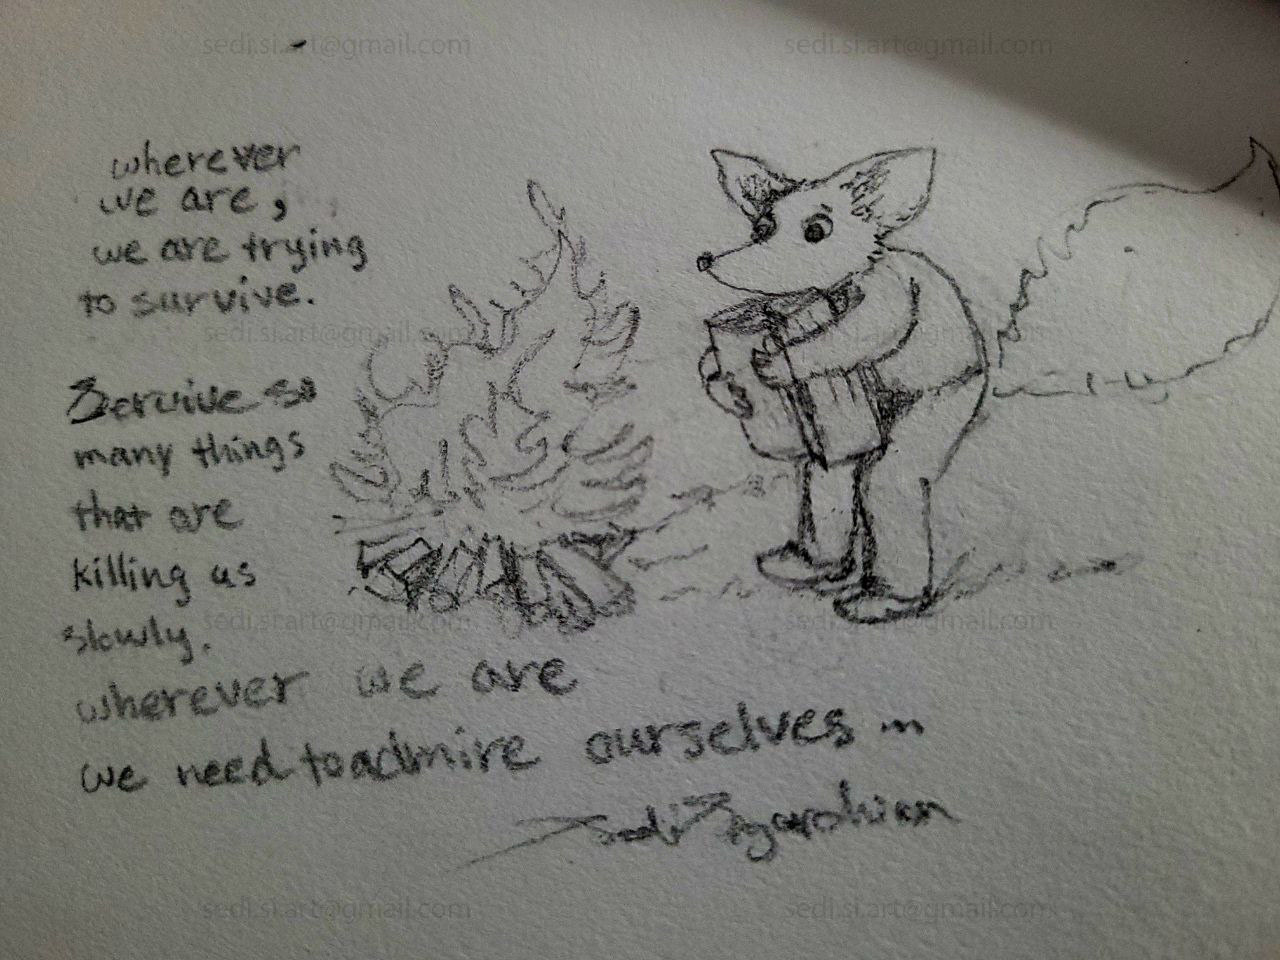 sedi.si.art@gmail.com sedi.si.art@gmail.com
wherever
we are,
we are trying
to survive.
sedi.si.art@gmail.com sedi.si.art@gmail.com
Servive so
many things
that are
killing us
slowly.
sedi.si.art@gmail.com sedi.si.art@gmail.com
wherever we are
we need to admire ourselves ...
Sedi
sedi.si.art@gmail.com sedi.si.art@gmail.com